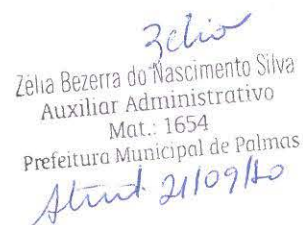 Zélia
Zélia Bezerra do Nascimento Silva
Auxiliar Administrativo
Mat.: 1654
Prefeitura Municipal de Palmas
21/09/